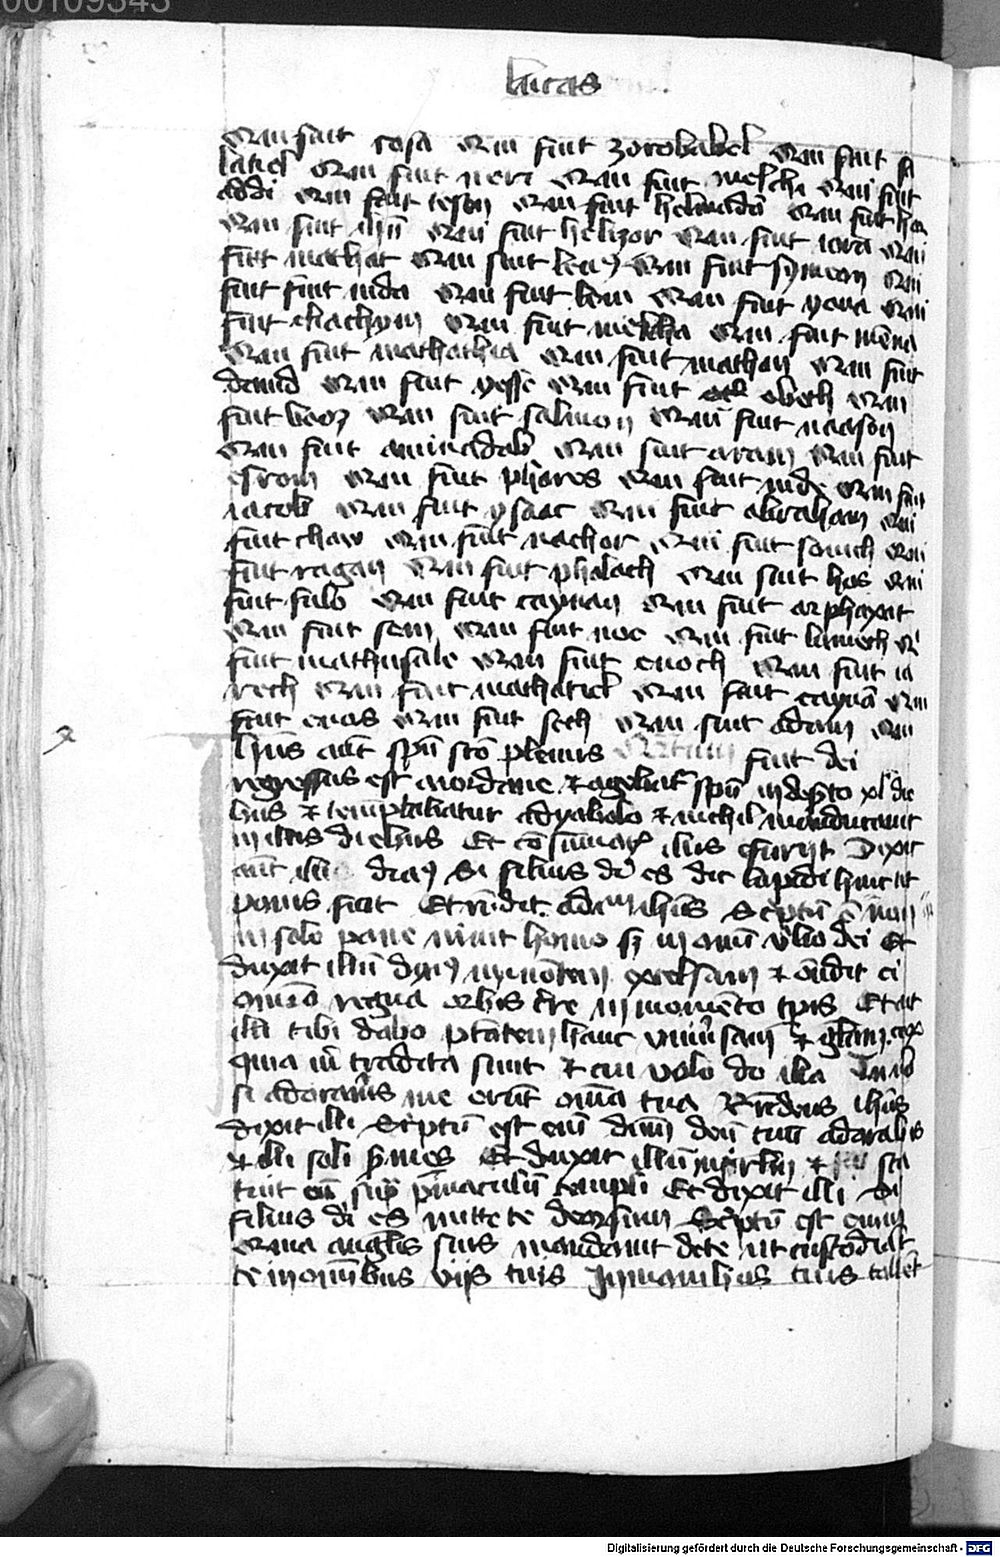 00109343
lucas
qui fuit resa qui fuit zorobabel qui fuit sa
latiel qui fuit neri qui fuit melchi qui fuit
addi qui fuit cosan qui fuit helmadā qui fuit her
qui fuit ihū qui fuit helizor qui fuit iorā qui
fuit mathat qui fuit leui qui fuit symeon qui
fuit fuit iuda qui fuit iona qui
fuit eliachym qui fuit melcha qui fuit mēna
qui fuit mathathia qui fuit nathan qui fuit
dauid qui fuit yesse qui fuit obeth qui
fuit booz qui fuit salmon qui fuit naason
qui fuit aminadab qui fuit aram qui fuit
esrom qui fuit phares qui fuit iude qui fuit
iacob qui fuit ysaac qui fuit abraham qui
fuit thare qui fuit nachor qui fuit seruch qui
fuit ragau qui fuit phalech qui fuit heb qui
fuit sale qui fuit caynan qui fuit arphaxat
qui fuit sem qui fuit noe qui fuit lamech qi
fuit mathusale qui fuit enoch qui fuit ia
rech qui fuit malaliel qui fuit caynā qui
fuit enos qui fuit seth qui fuit adam qui
Ihūs aūt spū scō plenus fuit dei
regressus est a iordane et agebatr spū in desto xl die
bus et temptabatur a dyabolo et nichil manducauit
in illis diebus Et cōsūmatis illis esuryt Dixit
aūt illi dias Si filius di es dic lapidi huic ut
panis fiat Et rndit ad eum ihūs Scptū ē nō
in solo pane uiuit homo sz in omī vbo dei Et
duxit illū dyas in mōtem excelsum et ōndit ei
omīa regna orbis tre in momēto tpis Et ait
illi tibi dabo ptātem hanc vniusam et glam eox
quia m tradita sunt et cui volo do illa Tu
si adorauis me erūt omīa tua Rndens ihūs
dixit illi Scptū est eni dnm deū tuū adorabis
et illi soli suies Et duxit illū in ihrlm et sta
tuit eū sup pinaculū templi Et dixit illi Si
filius di es mitte te deorsum Scptū est enim
qr angelis suis mandauit de te ut custodiāt
te in omibus viis tuis In manibus tuis tollēt
Digitalisierung gefördert durch die Deutsche Forschungsgemeinschaft - DFG